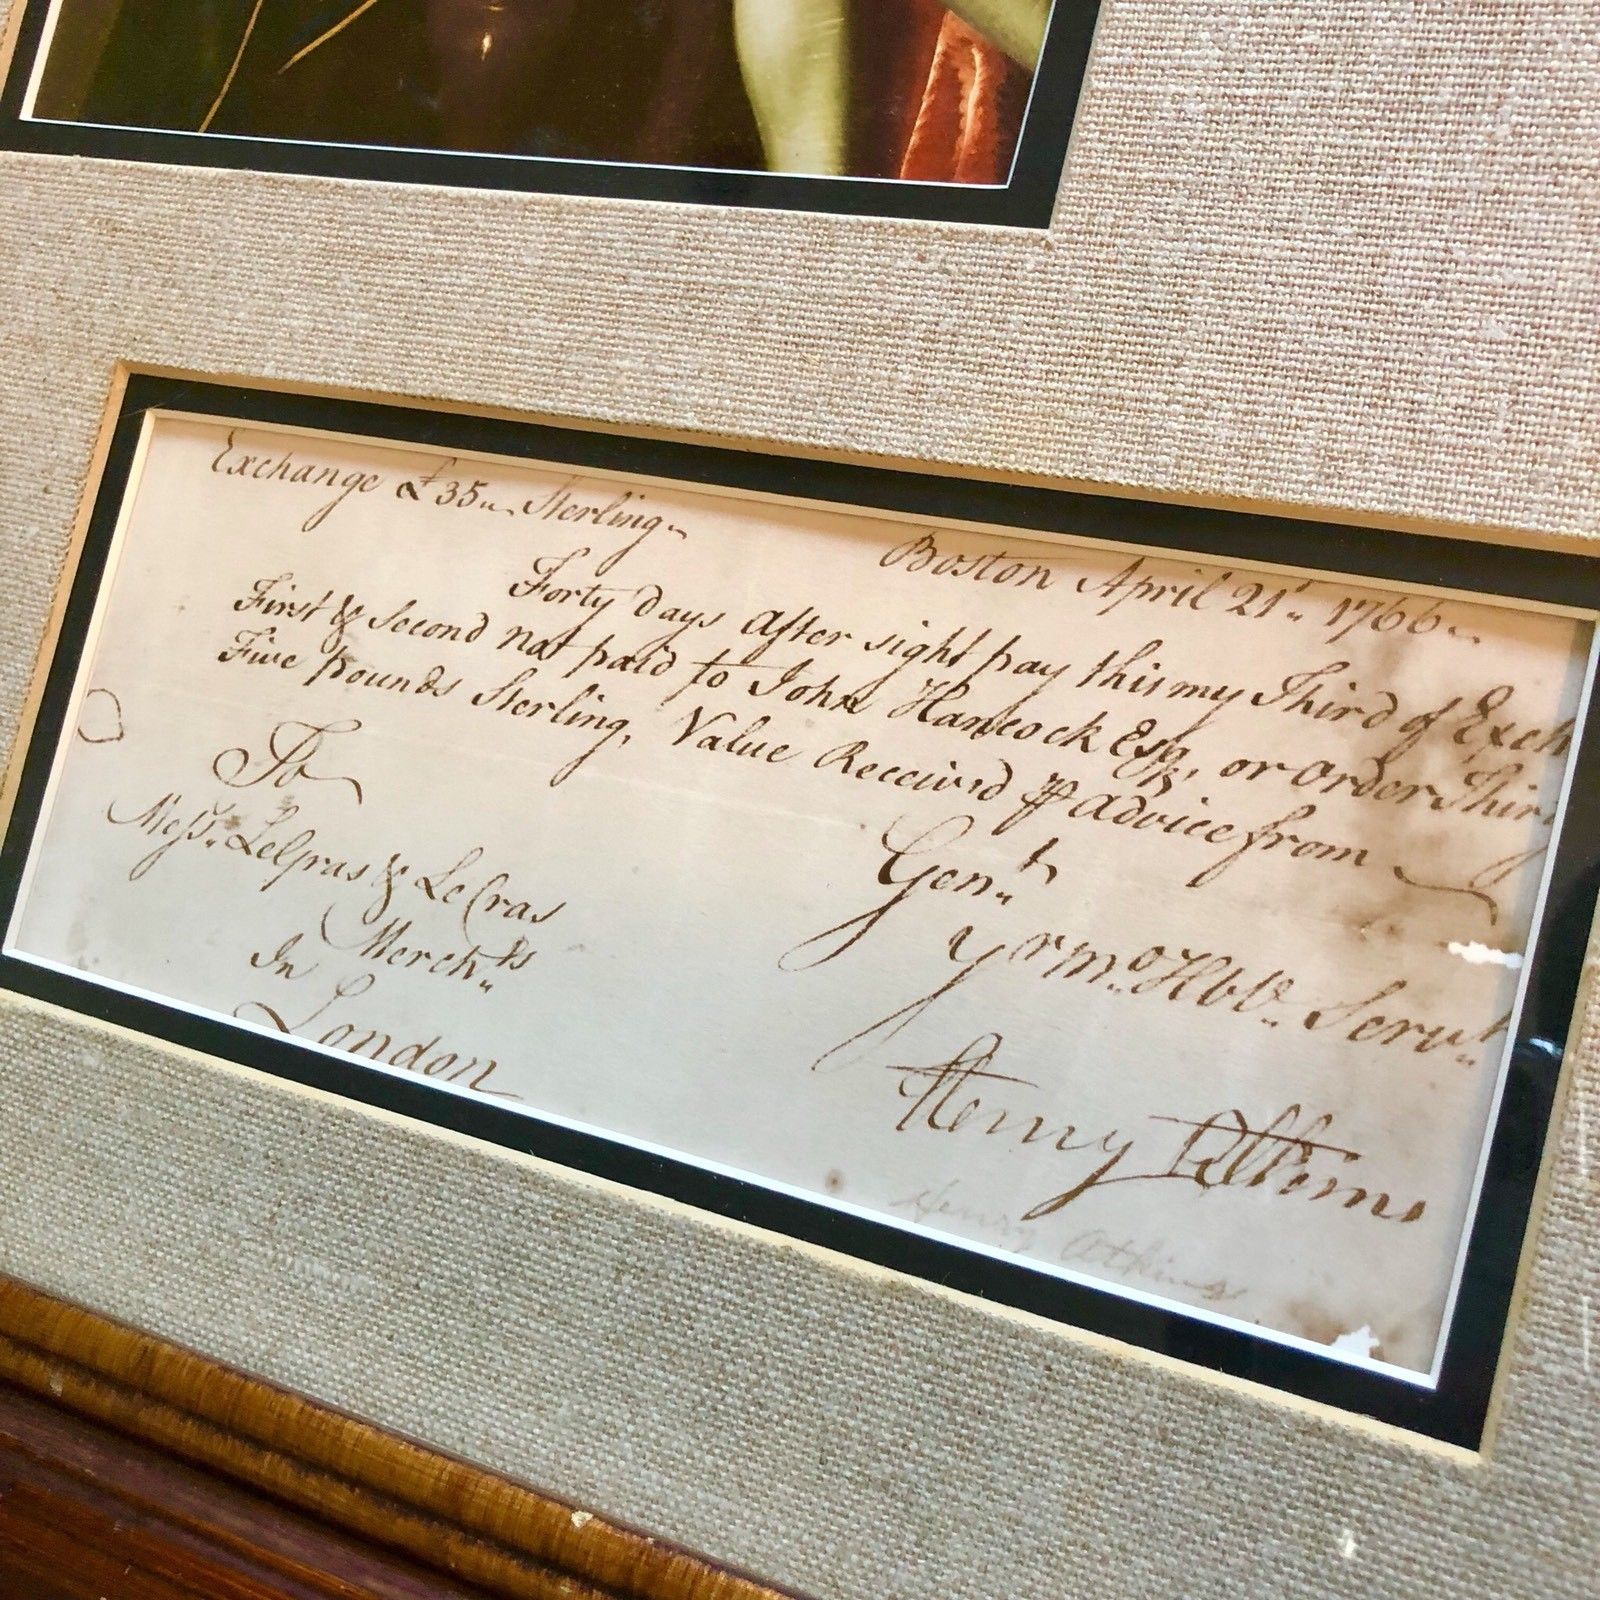 Exchange £35 Sterling
Boston April 21st 1766
Forty days after sight pay this my Third of Exch
First & Second not paid to John Hancock Esqr, or order Thirty
Five Pounds Sterling, Value Received ⅌ advice from
To
Gent
Messrs. LeGras & LeCras
Yr mo. Hble. Servt.
Mercht's
In
London
Henry Atkins
Henry Atkins